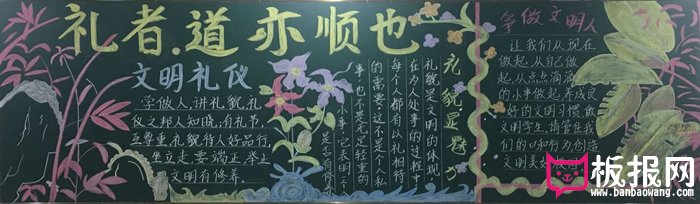 礼者.道亦顺也
文明礼仪
字做人,讲礼貌,礼
仪之邦人知晓,有礼节,
互尊重,礼貌待人好品行,
坐立走要端正,举止
文明有修养.
礼貌是魅力
礼貌是文明的体现
在为人处事的过程
每个人都有以礼相待
的需要,这不是个私
事,也不是无足轻重的
小事,它表明个
争做文明人
让我们从现在
做起,从自己做
起,从点点滴滴
的小事做起,养成良
好的文明习惯,做
文明学生,请管住我
们的口和行为创造
文明美
板报网
www.banbaowang.com